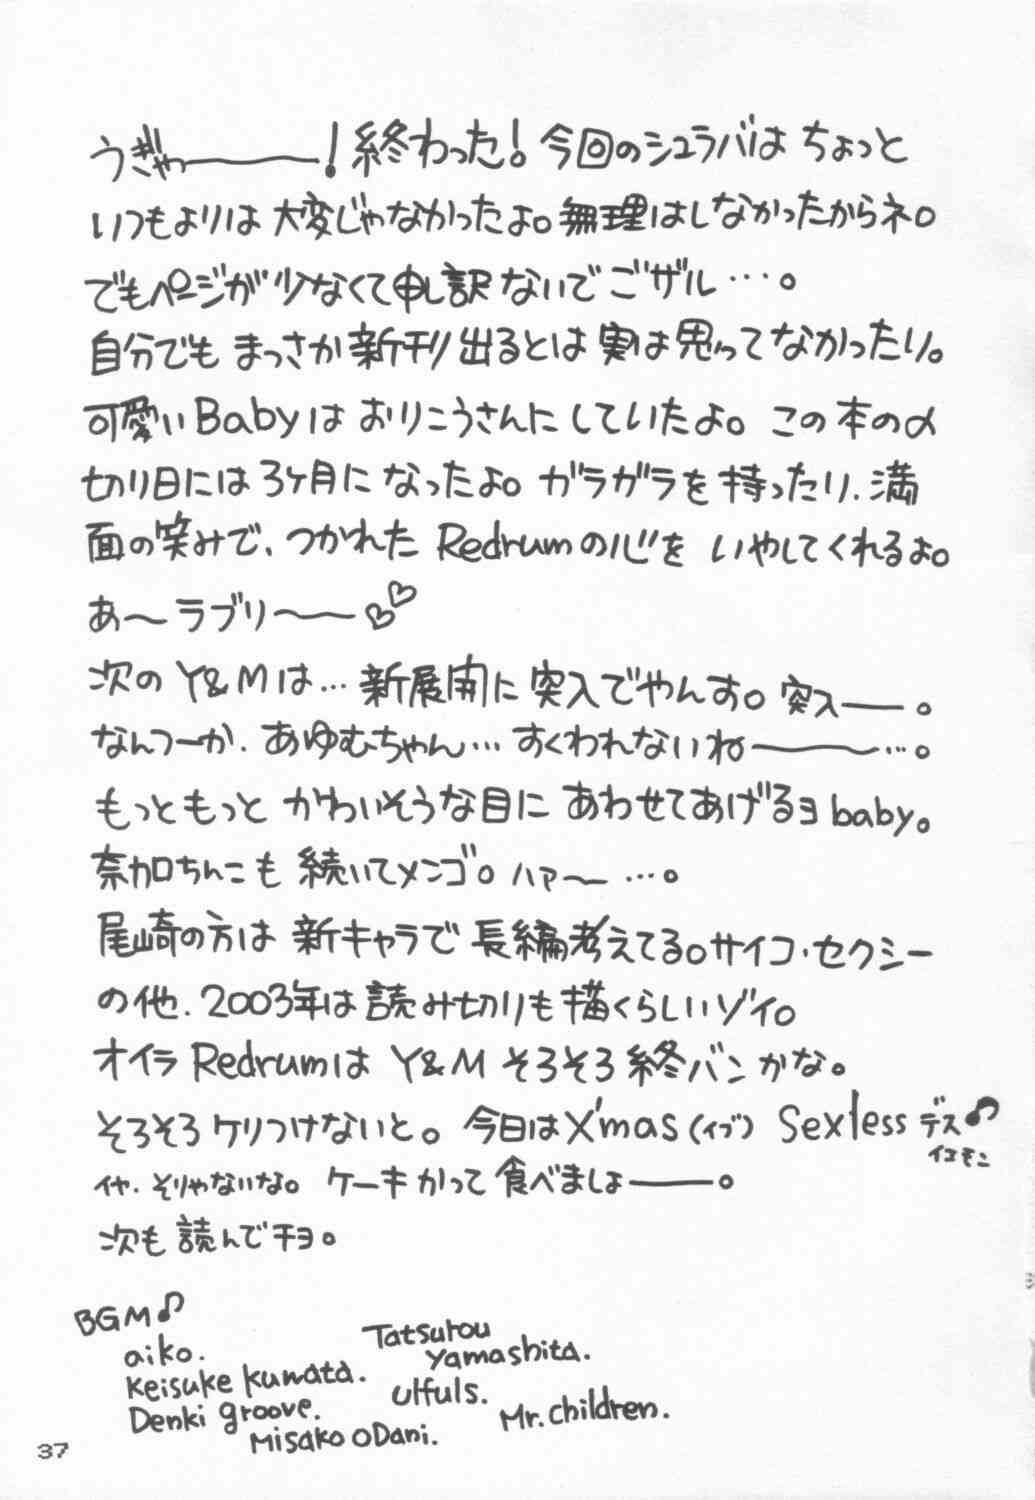 うぎゃ――――！終わった！今回のシュラバは ちょっと
いつもよりは 大変じゃなかったよ。無理はしなかったからネ。
でもページが少なくて申し訳ないでござル…。
自分でも まっさか新刊出るとは実は思ってなかったり。
可愛いBabyは おりこうさんにしていたよ。この本の〆
切り日には3ヶ月になったよ。ガラガラを持ったり、満
面の笑みで、つかれた Redrumの心を いやしてくれるよ。
あ～ラブリ～――♡♡
次の Y&Mは…新展開に突入でやんす。突入――。
なんつーか、あゆむちゃん… すくわれないね～――…。
もっともっと かわいそうな目に あわせてあげるヨbaby。
奈加ちんこも 続いてメンゴ。ハァ～…。
尾崎の方は 新キャラで 長編考えてる。サイコ・セクシー
の他、2003年は読み切りも描くらしいゾイ。
オイラ Redrumは Y&M そろそろ終バンかな。
そろそろケリつけないと。今日はX'mas（イブ） Sexless デス♪
イエモン
イヤ、そりゃないな。ケーキかって食べましょ――。
次も 読んでチョ。
BGM♪
aiko.
Tatsurou
Yamashita.
Keisuke Kuwata.
Ulfuls.
Denki groove.
Mr. Children.
Misako ODani.
37